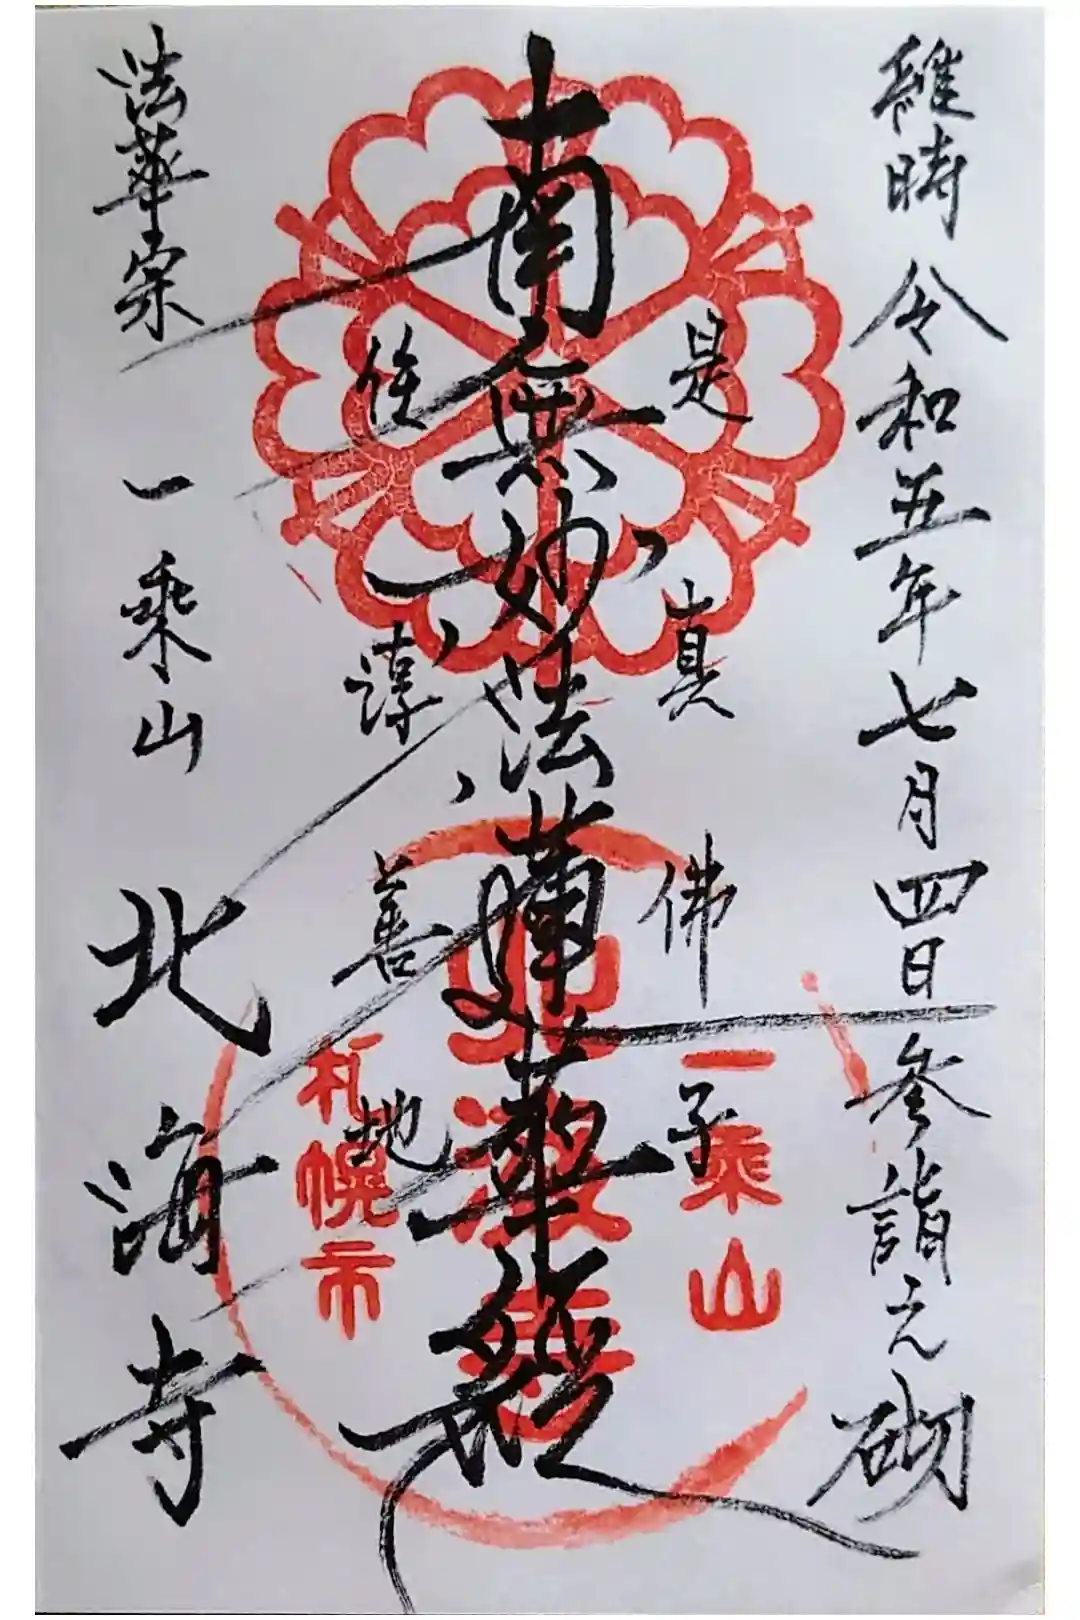 維時 令和五年七月四日参詣之砌
是真佛子
南無妙法蓮華経
住淳善地
法華宗 一乗山 北海寺
一乗山
札幌市